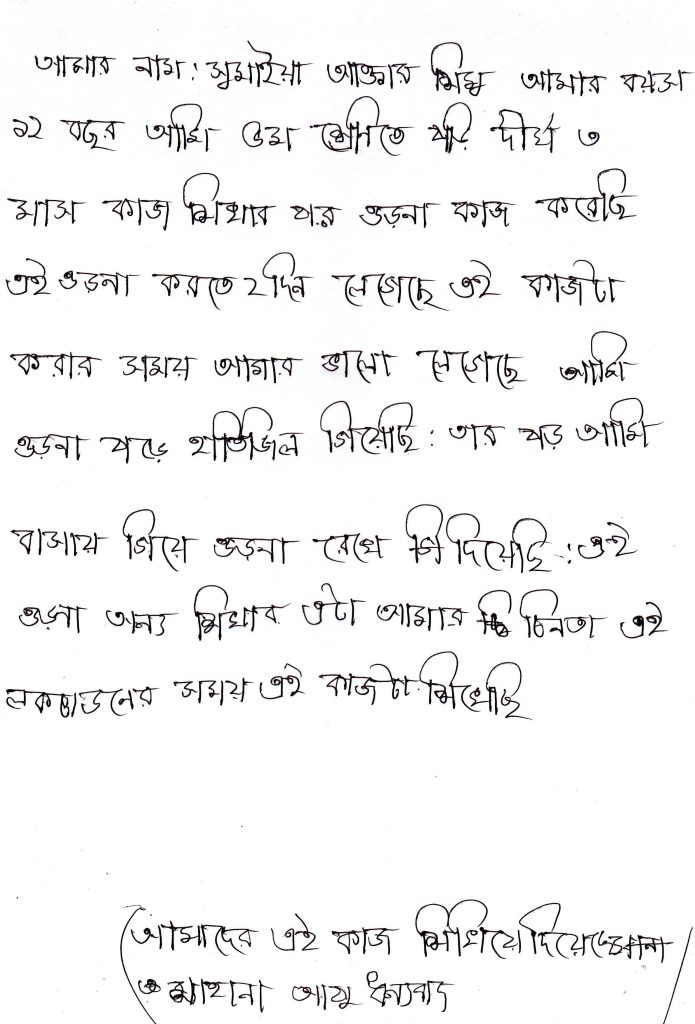 আমার নাম: সুমাইয়া আক্তার মিম্মু আমার বয়স
১২ বছর আমি ৫ম শ্রেনিতে পড়ি দীর্ঘ ৩
মাস কাজ শিখার পর ওড়না কাজ করেছি
এই ওড়না করতে ২দিন লেগেছে এই কাজটা
করার সময় আমার ভালো লেগেছে আমি
ওড়না পড়ে হাতিজিল গিয়েছি: তার পড় আমি
বাসায় গিয়ে ওড়না রেখে দিয়েছি: এই
ওড়না অন্য শিখার এটা আমার চিনতা এই
লকডাউনের সময় এই কাজটা শিখেছি
(আমাদের এই কাজ শিখিয়ে দিয়েছে
ও আপু ধন্যবাদ